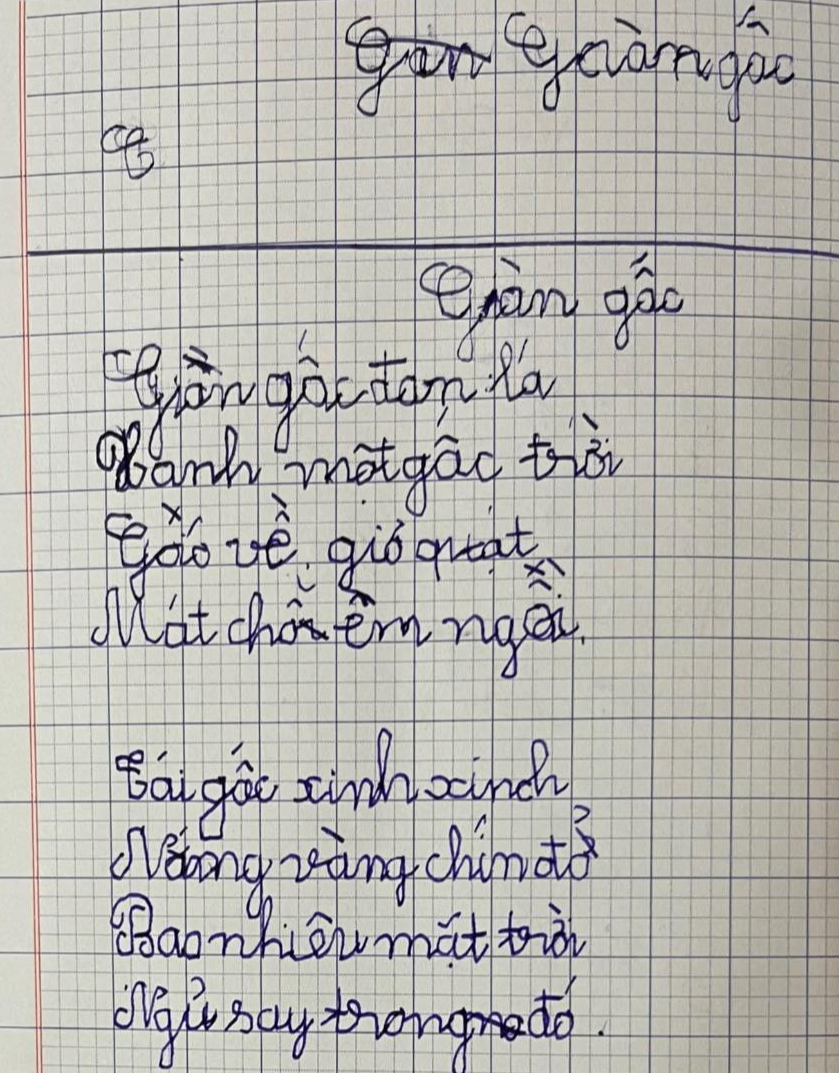 Giàn gấc
G
Giàn gấc
Giàn gấc đan lá
Xanh một gấc trời
Gấc về gió quạt
Mát chỗ êm ngồi.
Tái gấc xinh xinh
Nắng vàng chín đỏ
Bao nhiêu mặt trời
Ngủ say trong đó.